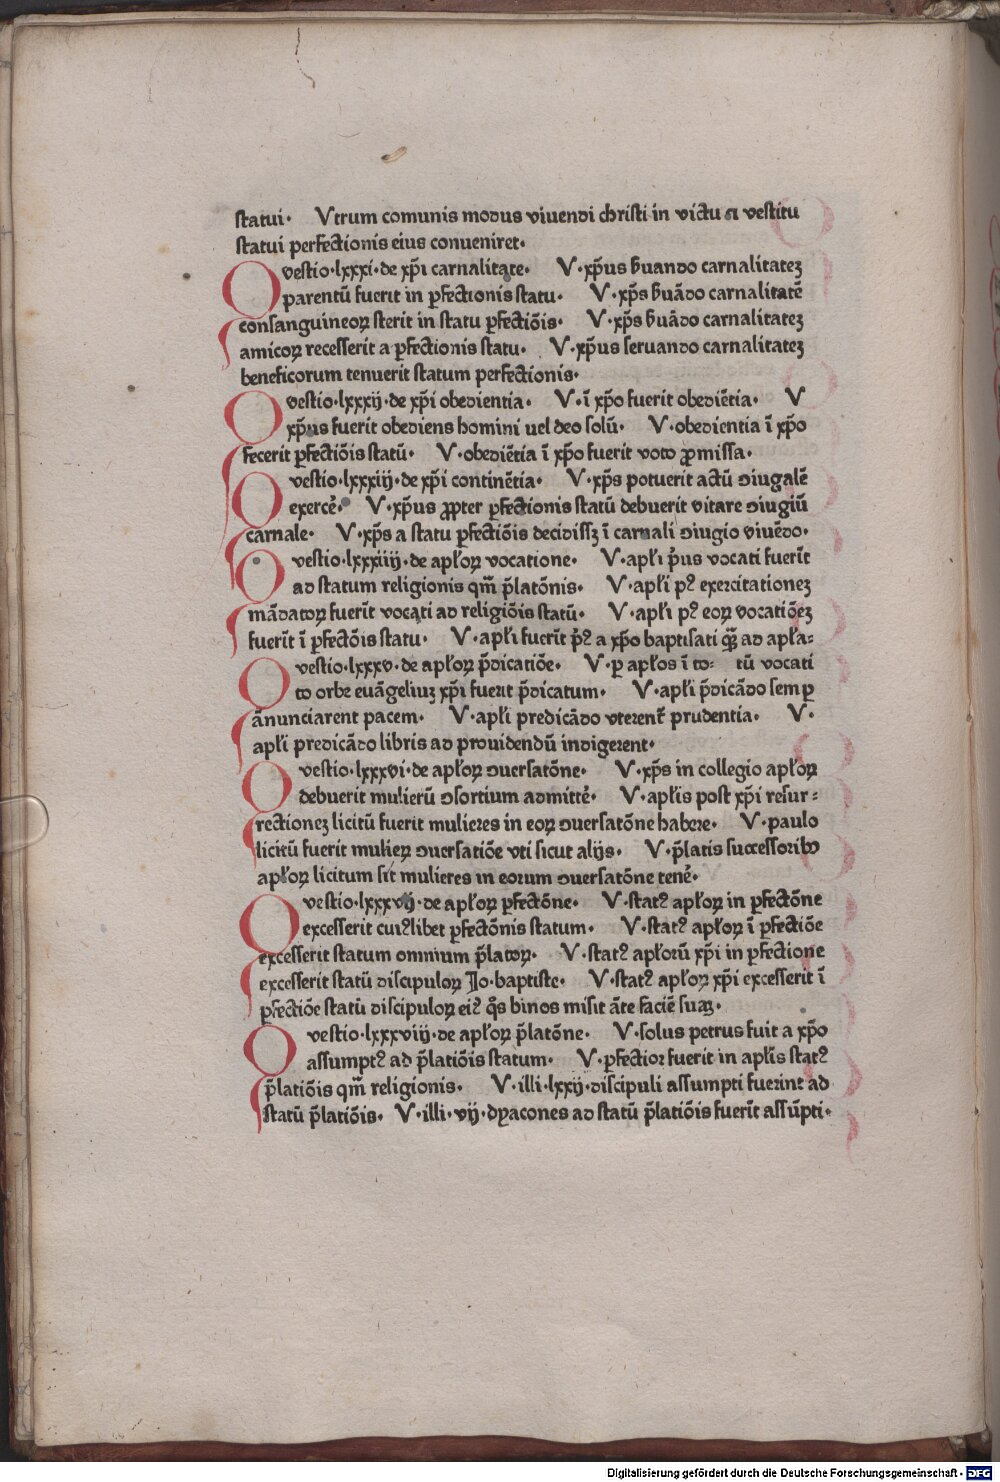 statui· Vtrum comunis modus viuendi christi in victu ⁊ vestitu
statui perfectionis eius conueniret·
Questio·lxxxi·de xp̄i carnalitate· V·xp̄us ẜuando carnalitatez
parentū fuerit in ꝑfectionis statu· V·xp̄s ẜuādo carnalitatē
consanguineoꝝ sterit in statu ꝑfectiōis· V·xp̄s ẜuādo carnalitatez
amicoꝝ recesserit a ꝑfectionis statu· V·xp̄us seruando carnalitatez
beneficorum tenuerit statum perfectionis·
Questio·lxxxij·de xp̄i obedientia· V·ī xp̄o fuerit obediētia· V
xp̄us fuerit obediens homini uel deo solū· V·obedientia ī xp̄o
fecerit ꝑfectiōis statū· V·obediētia ī xp̄o fuerit voto ꝓmissa·
Questio·lxxxiij·de xp̄i continētia· V·xp̄s potuerit actū ↄiugalē
exercē· V·xp̄us ꝓpter ꝑfectionis statū debuerit vitare ↄiugiū
carnale· V·xp̄s a statu ꝑfectiōis decidissꝫ ī carnali ↄiugio viuēdo·
Questio·lxxxiiij·de apłoꝝ vocatione· V·apłi p̄us vocati fuerīt
ad statum religionis qm̄ p̄latōnis· V·apłi pꝰ exercitationez
mādatoꝝ fuerīt vocati ad religiōis statū· V·apłi pꝰ eoꝝ vocatiōez
fuerīt ī ꝑfectōis statu· V·apłi fuerīt p̄ꝰ a xp̄o baptisati qꝫ̄ ad apła⸗
Questio·lxxxv·de apłoꝝ p̄dicatiōe· V·ꝑ apłos ī to⸗ tū vocati
to orbe euāgeliuz xp̄i fuerit p̄dicatum· V·apłi p̄dicādo semꝑ
ānunciarent pacem· V·apłi predicādo vterent̄ prudentia· V·
apłi predicādo libris ad prouidendū indigerent·
Questio·lxxxvi·de apłoꝝ ↄuersatōne· V·xp̄s in collegio apłoꝝ
debuerit mulierū ↄsortium admittē· V·apłis post xp̄i resur⸗
rectionez licitū fuerit mulieres in eoꝝ ↄuersatōne habere· V·paulo
licitū fuerit mulieꝝ ↄuersatiōe vti sicut alijs· V·p̄latis successoribꝰ
apłoꝝ licitum sit mulieres in eorum ↄuersatōne tenē·
Questio·lxxxvij·de apłoꝝ ꝑfectōne· V·statꝰ apłoꝝ in ꝑfectōne
excesserit cuiꝰlibet ꝑfectōnis statum· V·statꝰ apłoꝝ ī ꝑfectiōe
excesserit statum omnium p̄latoꝝ· V·statꝰ apłorū xp̄i in ꝑfectione
excesserit statū discipuloꝝ Jo·baptiste· V·statꝰ apłoꝝ xp̄i excesserit ī
ꝑfectiōe statū discipuloꝝ eiꝰ q̄s binos misit āte faciē suaꝫ·
Questio·lxxxviij·de apłoꝝ p̄latōne· V·solus petrus fuit a xp̄o
assumptꝰ ad p̄latiōis statum· V·ꝑfectior fuerit in apłis statꝰ
p̄latiōis qm̄ religionis· V·illi·lxxij·discipuli assumpti fuerint ad
statū p̄latiōis· V·illi·vij·dyacones ad statū p̄latiōis fuerīt assūpti·
Digitalisierung gefördert durch die Deutsche Forschungsgemeinschaft - DFG